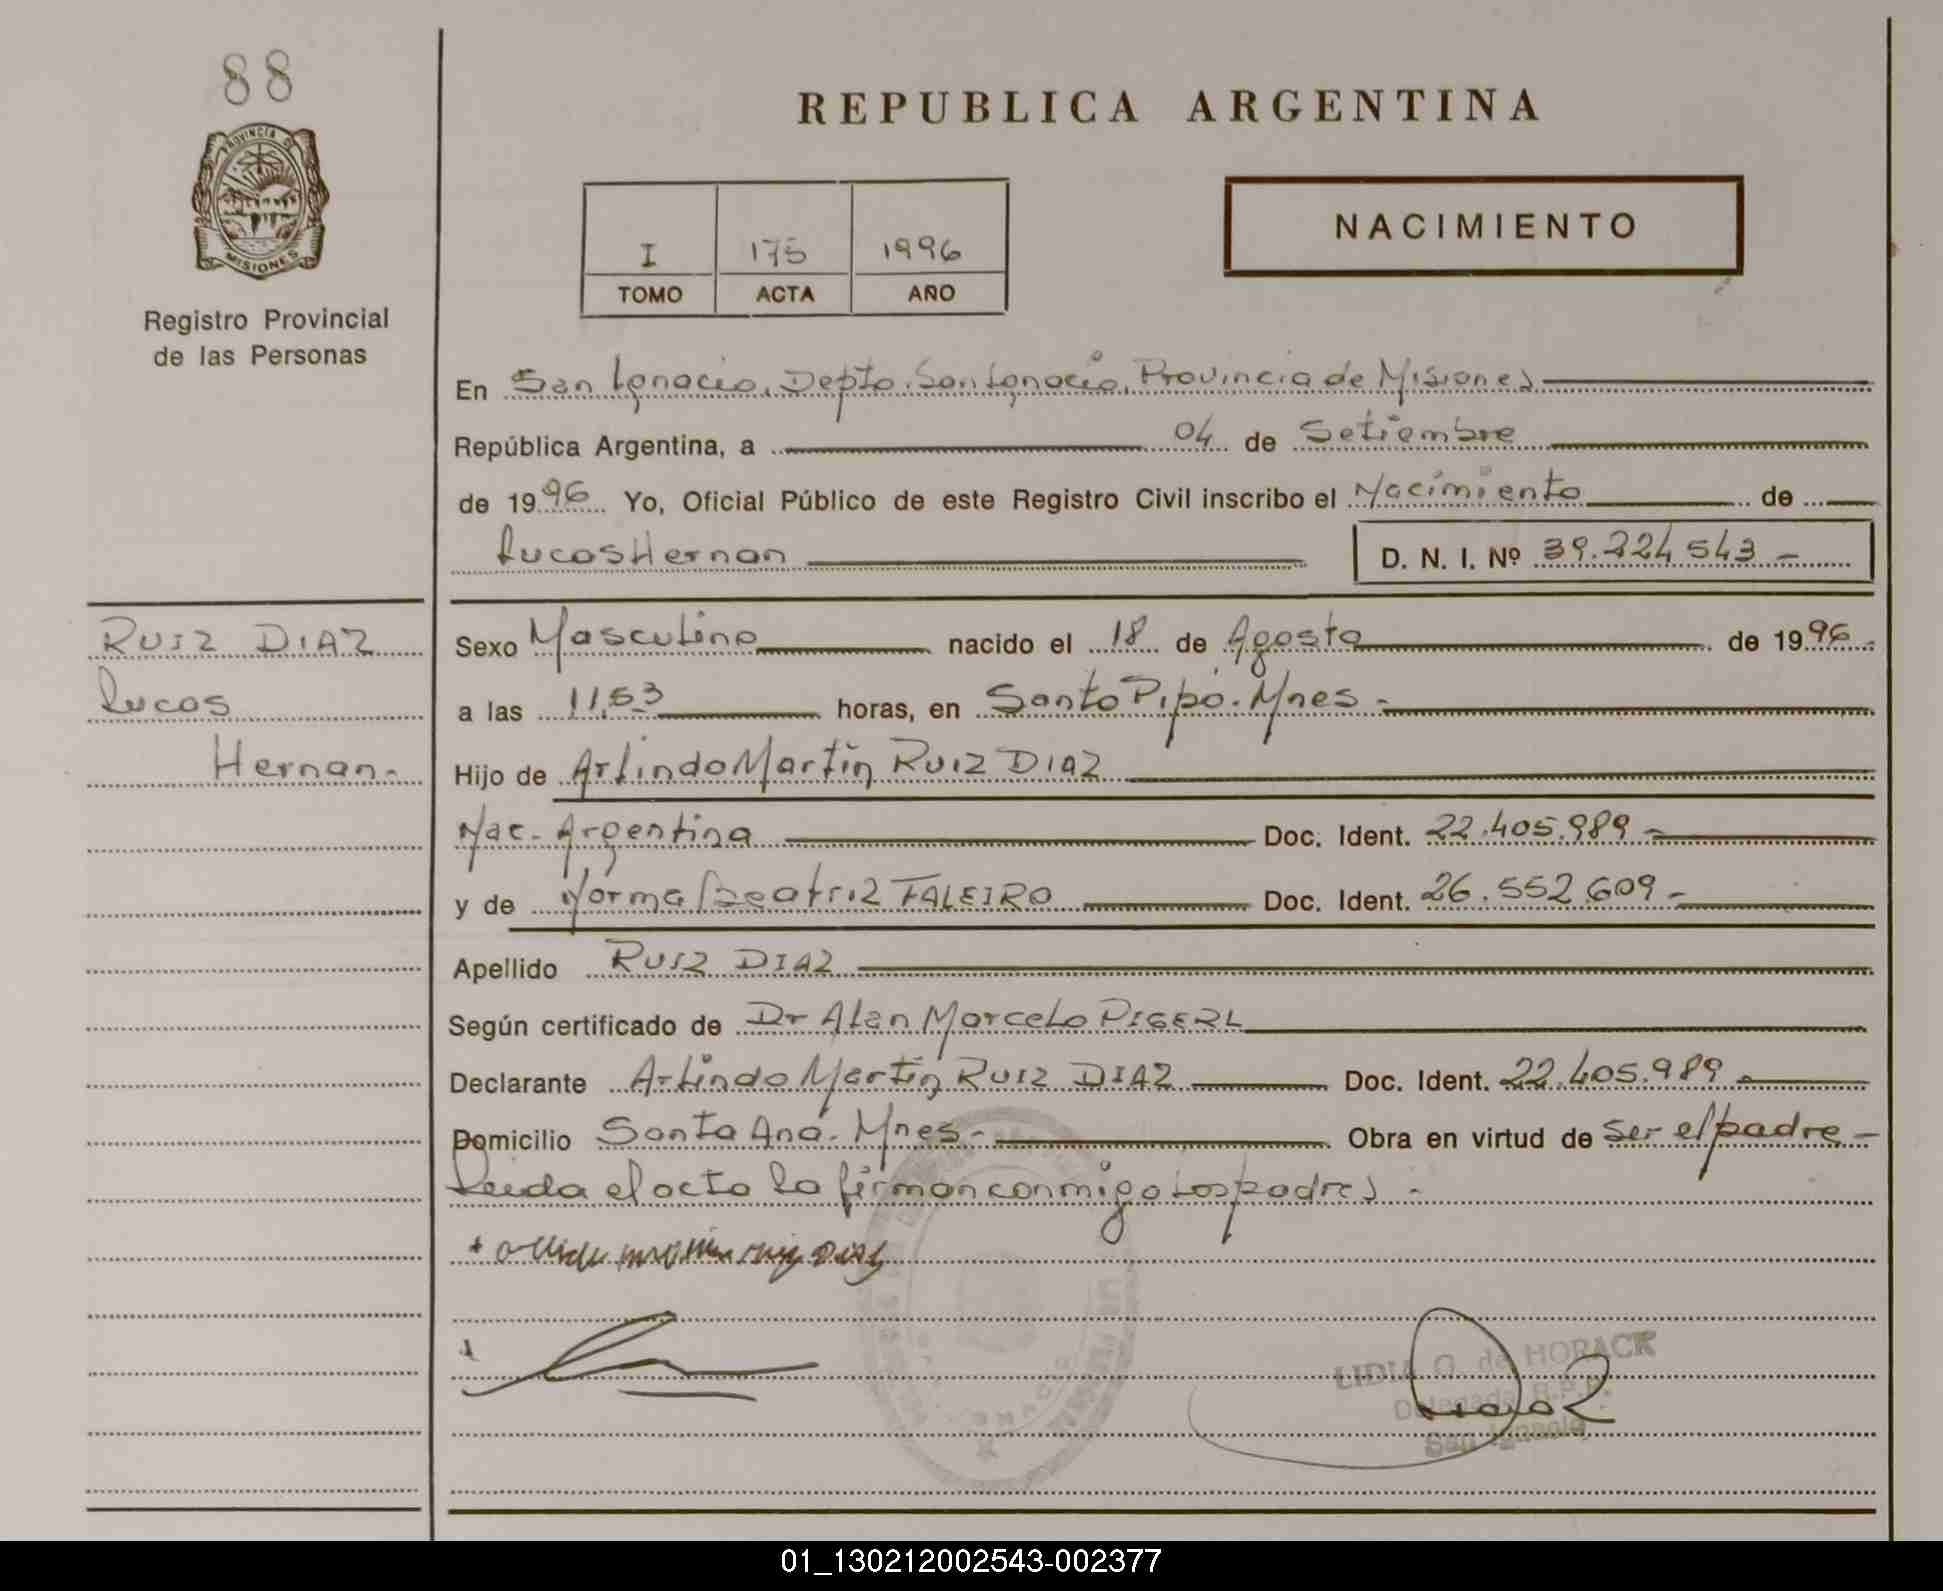 88
PROVINCIA DE
MISIONES
Registro Provincial
de las Personas
REPUBLICA ARGENTINA
I 175 1996
TOMO ACTA AÑO
NACIMIENTO
En San Ignacio, Depto. San Ignacio, Provincia de Misiones
República Argentina, a 04 de Setiembre
de 1996 Yo, Oficial Público de este Registro Civil inscribo el Nacimiento de
Lucas Hernan D. N. I. Nº 39.224.543 -
RUIZ DIAZ
Lucas
Hernan.-
Sexo Masculino nacido el 18 de Agosto de 1996.
a las 11,53 horas, en Santo Pipó. Mnes -
Hijo de Arlindo Martin RUIZ DIAZ
Nac. Argentina Doc. Ident. 22.405.989 -
y de Norma Beatriz FALEIRO Doc. Ident. 26.552.609 -
Apellido RUIZ DIAZ
Según certificado de Dr Alan Marcelo PIGERL
Declarante Arlindo Martin RUIZ DIAZ Doc. Ident. 22.405.989 -
Domicilio Santa Ana. Mnes - Obra en virtud de ser el padre -
Leida el acta la firman conmigo los padres -
LIDIA O. de HORACK
Delegada R.P.P.
San Ignacio
01_130212002543-002377